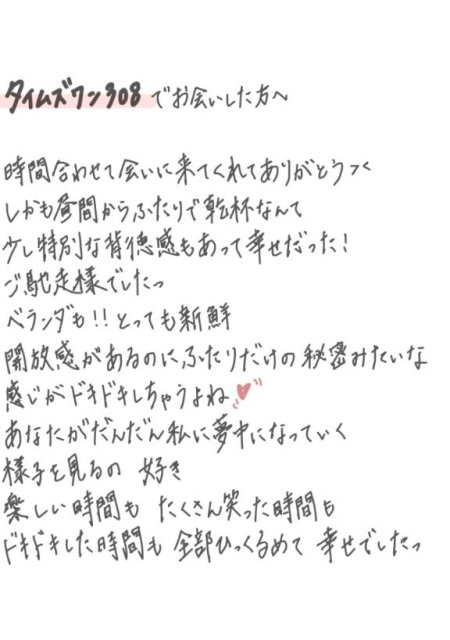 タイムズワン308 でお会いした方へ
時間合わせて会いに来てくれてありがとうっ
しかも昼間からふたりで乾杯なんて
少し特別な背徳感もあって幸せだった!
ご馳走様でしたっ
ベランダも!!とっても新鮮
開放感があるのにふたりだけの秘密みたいな
感じがドキドキしちゃうよね
あなたがだんだん私に夢中になっていく
様子を見るの 好き
楽しい時間も たくさん笑った時間も
ドキドキした時間も 全部ひっくるめて 幸せでしたっ